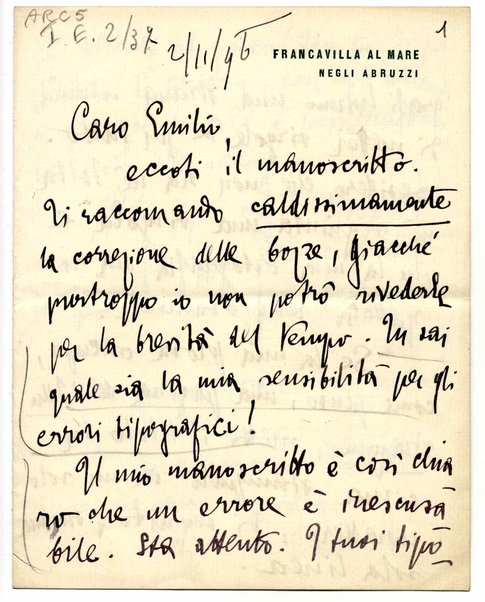 ARC 5
I. E. 2/37
2/11/96
1
FRANCAVILLA AL MARE
NEGLI ABRUZZI
Caro Emilio,
eccoti il manoscritto.
Ti raccomando caldissimamente
la correzione delle bozze, giacché
purtroppo io non potrò rivederle
per la brevità del tempo. Tu sai
quale sia la mia sensibilità per gli
errori tipografici!
Il mio manoscritto è così chia
ro che un errore è inescusa
bile. Sta attento. I tuoi tipo